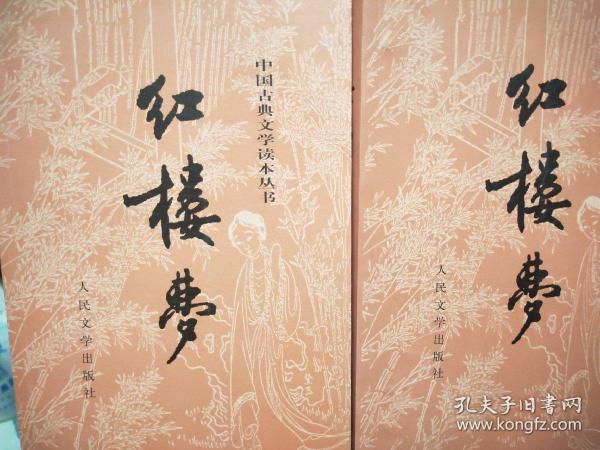 中国古典文学读本丛书
红楼梦
人民文学出版社
红楼梦
人民文学出版社
孔夫子旧书网
www.kongfz.com